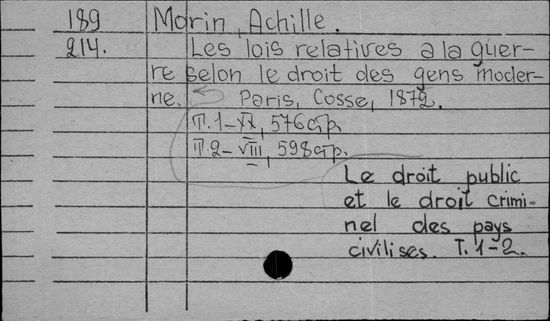 189 Morin, Achille.
214. Les lois relatives a la guer-
re selon le droit des gens moder-
ne. Paris, Cosse, 1872.
T.1-XX, 576 стр.
T.2-VIII, 598 стр.
Le droit public
et le droit crimi-
nel des pays
civilises. T. 1-2.